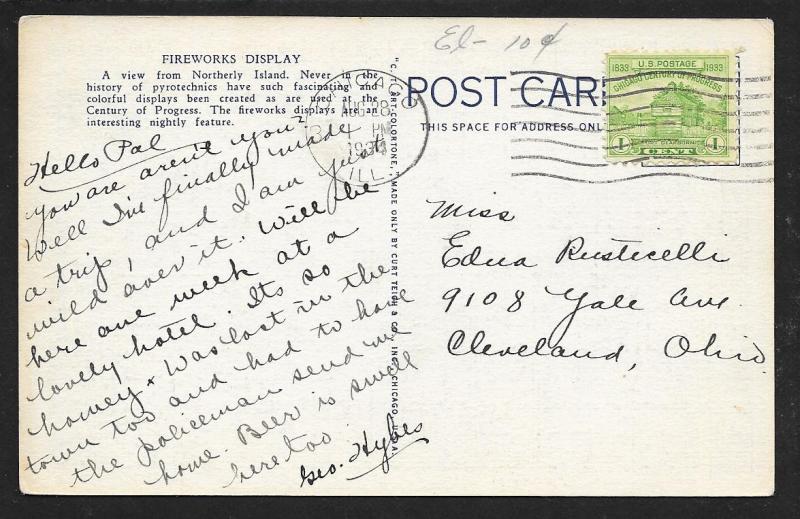 El- 10¢
FIREWORKS DISPLAY
A view from Northerly Island. Never in the
history of pyrotechnics have such fascinating and
colorful displays been created as are used at the
Century of Progress. The fireworks displays are an
interesting nightly feature.
Hello Pal
you are aren't you?
Well I've finally made
a trip, and I am just
wild over it. Will be
here one week at a
lovely hotel. Its so
homey. Was lost in the
town too and had to have
the policeman send me
home. Beer is swell
here too.
Geo. Hybes
"C.T. ART-COLORTONE" MADE ONLY BY CURT TEICH & CO., INC., CHICAGO, U.S.A.
POST CARD
THIS SPACE FOR ADDRESS ONLY
CHICAGO
AUG 28
PM
1933
ILL.
U.S. POSTAGE
1833 1933
CHICAGO CENTURY OF PROGRESS
FORT DEARBORN
1 CENT 1
Miss
Edna Rusticelli
9108 Yale Ave.
Cleveland, Ohio.